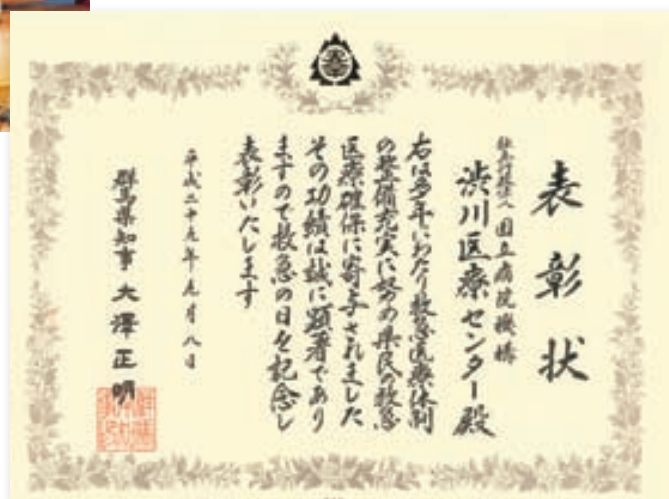 表彰状
独立行政法人 国立病院機構
渋川医療センター殿
右は多年にわたり救急医療体制
の整備充実に努め県民の救急
医療確保に寄与されました
その功績は誠に顕著であり
ますので救急の日を記念し
表彰いたします
平成二十九年九月八日
群馬県知事 大澤正明